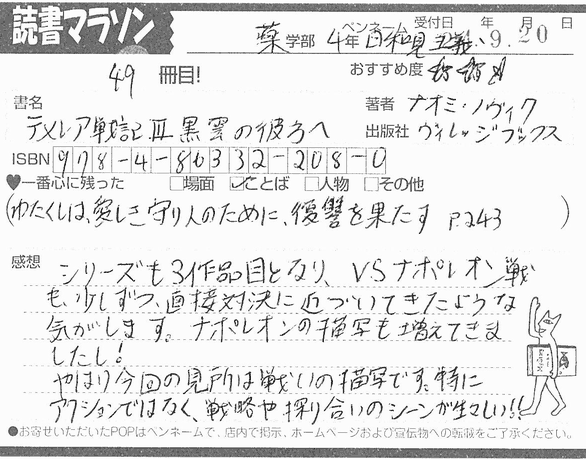 読書マラソン
薬学部 4年 ペンネーム 日和見主義 受付日 年 9月 20日
49 冊目!
おすすめ度
書名
テメレア戦記Ⅲ 黒雲の彼方へ
著者 ナオミ・ノヴィク
出版社 ヴィレッジブックス
ISBN 978-4-86332-208-0
♥一番心に残った □場面 ☑ことば □人物 □その他
(わたくしは、愛しき守り人のために、復讐を果たす P.243)
感想
シリーズも3作品目となり、VSナポレオン戦
も、少しずつ、直接対決に近づいてきたような
気がします。ナポレオンの描写も増えてきま
したし!
やはり今回の見所は戦いの描写です。特に
アクションではなく、戦略や探り合いのシーンが生々しい!!
●お寄せいただいたPOPはペンネームで、店内で掲示、ホームページおよび宣伝物への転載をご了承ください。